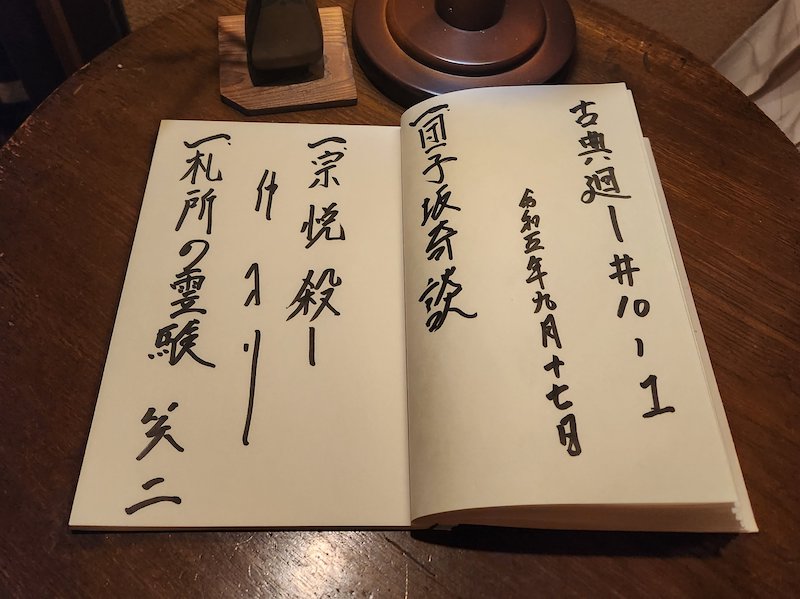 古典廻し#10-1
令和五年九月十七日
一、団子坂奇談
一、宗悦殺し
仲入り
一、札所の霊験 笑二